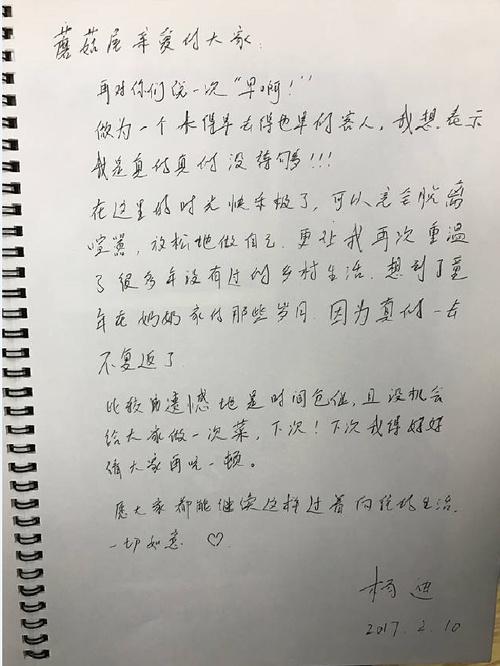 蘑菇屋亲爱的大家：
再对你们说一次“早啊！”
做为一个来得早去得也早的客人，我想表示
我是真的真的没待够!!!
在这里的时光快乐极了，可以完全脱离
喧嚣，放松地做自己．更让我再次重温
了很多年没有过的乡村生活．想到了童
年在奶奶家的那些岁月．因为真的一去
不复返了．
比较遗憾地是时间仓促，且没机会
给大家做一次菜，下次！下次我得好好
请大家再吃一顿。
愿大家都能继续这样过着向往的生活．
一切如意．♡
杨迪
2017.2.10